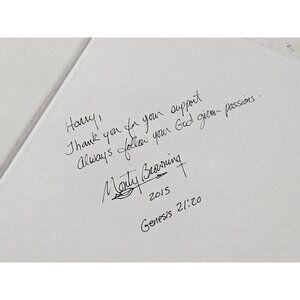 Harry,
Thank you for your support
Always follow your God given passions.
Monty Browning
2015
Genesis 21:20